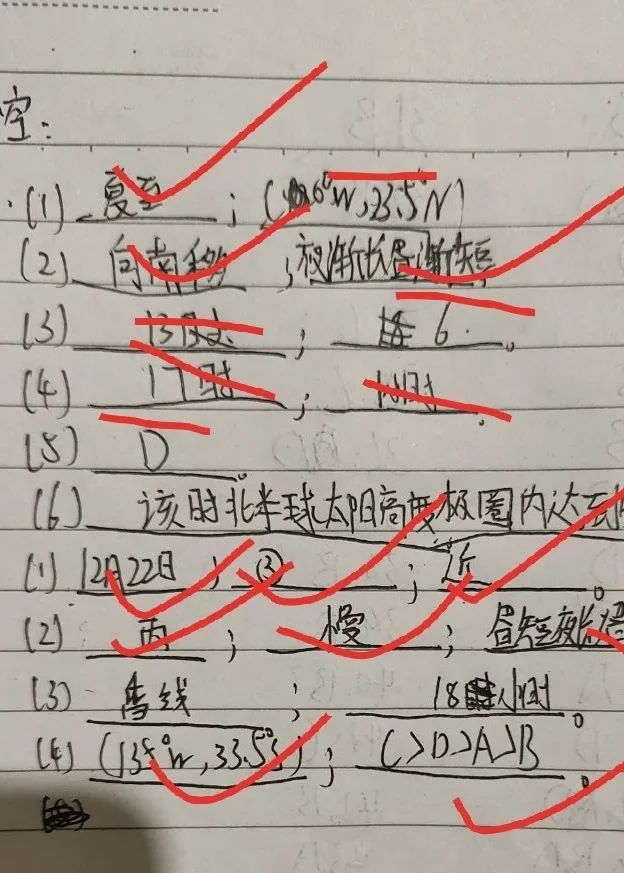 空:
(1) 夏至 ; ( 6°W,23.5°N)
(2) 向南移 ;夜渐长昼渐短
(3) 13 ; 6.
(4) 17时 ; 时.
(5) D.
(6) 该时北半球太阳高度极圈内达到
(1) 12月22日 ; ③ ; 近。
(2) 丙 ; 慢 ; 昼短夜长
(3) 线 ; 18小时。
(4) (135°W,33.5°S) ; C>D>A>B。